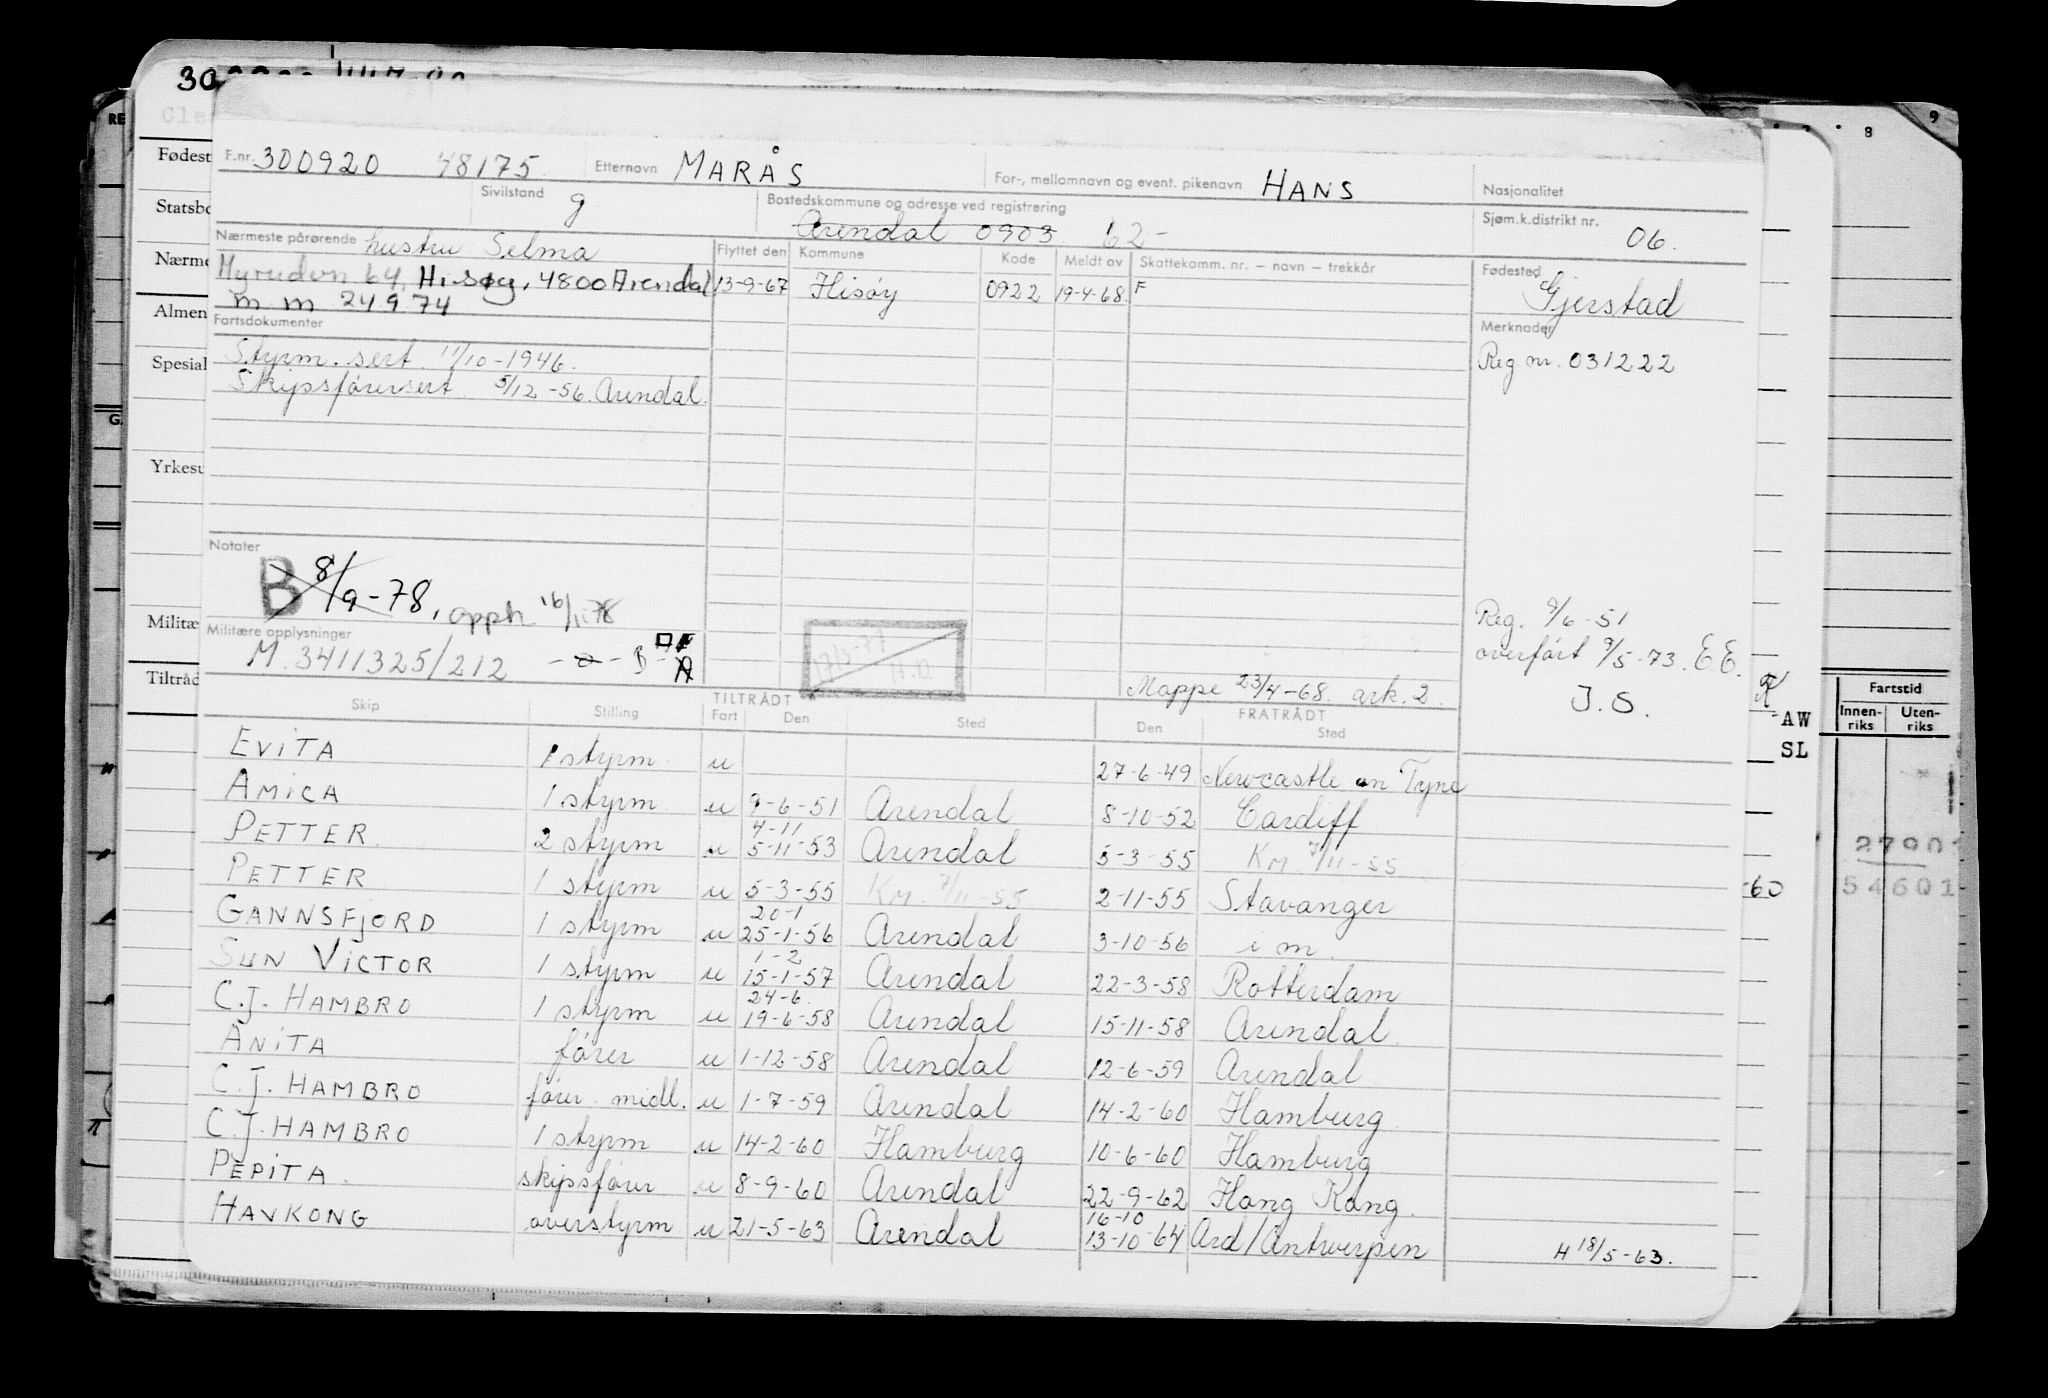 F.nr. 300920 48175 Etternavn MARÅS For-, mellomnavn og event. pikenavn HANS Nasjonalitet
Sivilstand g Bostedskommune og adresse ved registrering Arendal 0903 62- Sjøm.k.distrikt nr. 06.
Nærmeste pårørende hustru Selma
Myrudvn 64, Hisøy, 4800 Arendal
m m 24974
Flyttet den Kommune Kode Meldt av Skattekomm. nr. – navn – trekkår
13-9-67 Hisøy 0922 19-4-68. F
Fødested Gjerstad
Fartsdokumenter
Styrm. sert. 11/10-1946.
Skipsførersert. 5/12-56. Arendal.
Merknader
Reg nr. 031222
Notater
B 8/9-78, opph 16/11-78
Militære opplysninger
M. 3411325/212
17/5-77
H.O.
Reg. 9/6-51
overført 9/5-73. E.E.
J.S.
Mappe 23/4-68. ark. 2.
TILTRÅDT FRATRÅDT
Skip Stilling Fart Den Sted Den Sted
EVITA 1 styrm u 27-6-49 Newcastle on Tyne
AMICA 1 styrm u 9-6-51 Arendal 8-10-52 Cardiff
4-11
PETTER. 2 styrm u 5-11-53 Arendal 5-3-55 KM. 7/11-55
PETTER 1 styrm u 5-3-55 KM. 7/11-55 2-11-55 Stavanger
20-1
GANNSFJORD 1 styrm u 25-1-56 Arendal 3-10-56 i m.
1-2
SUN VICTOR 1 styrm u 15-1-57 Arendal 22-3-58 Rotterdam
24-6.
C.J. HAMBRO 1 styrm u 19-6-58 Arendal 15-11-58 Arendal
ANITA fører u 1-12-58 Arendal 12-6-59 Arendal
C.J. HAMBRO fører midl. u 1-7-59 Arendal 14-2-60 Hamburg
C.J. HAMBRO 1 styrm u 14-2-60 Hamburg 10-6-60 Hamburg
PEPITA. skipsfører u 8-9-60 Arendal 22-9-62 Hong Kong.
16-10
HAVKONG overstyrm u 21-5-63 Arendal 13-10-64 Ard/Antwerpen H 18/5-63.
30
Cle
Fødest
Statsbo
Nærme
Almen
Spesial
Yrkesu
Militæ
Tiltråd
RE
G.
8
9
K
-AW
SL
-60
Fartstid
Innen-
riks
Uten-
riks
27901
54601